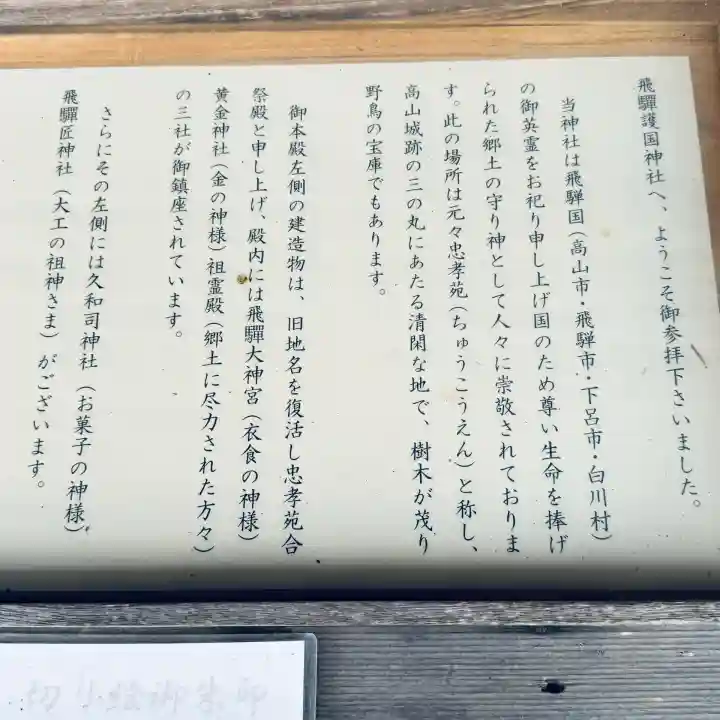 飛騨護国神社へ、ようこそ御参拝下さいました。
当神社は飛騨国（高山市・飛騨市・下呂市・白川村）
の御英霊をお祀り申し上げ国のため尊い生命を捧げ
られた郷土の守り神として人々に崇敬されておりま
す。此の場所は元々忠孝苑（ちゅうこうえん）と称し、
高山城跡の三の丸にあたる清閑な地で、樹木が茂り
野鳥の宝庫でもあります。
御本殿左側の建造物は、旧地名を復活し忠孝苑合
祭殿と申し上げ、殿内には飛騨大神宮（衣食の神様）
黄金神社（金の神様）祖霊殿（郷土に尽力された方々）
の三社が御鎮座されています。
さらにその左側には久和司神社（お菓子の神様）
飛騨匠神社（大工の祖神さま）がございます。
切り絵御朱印